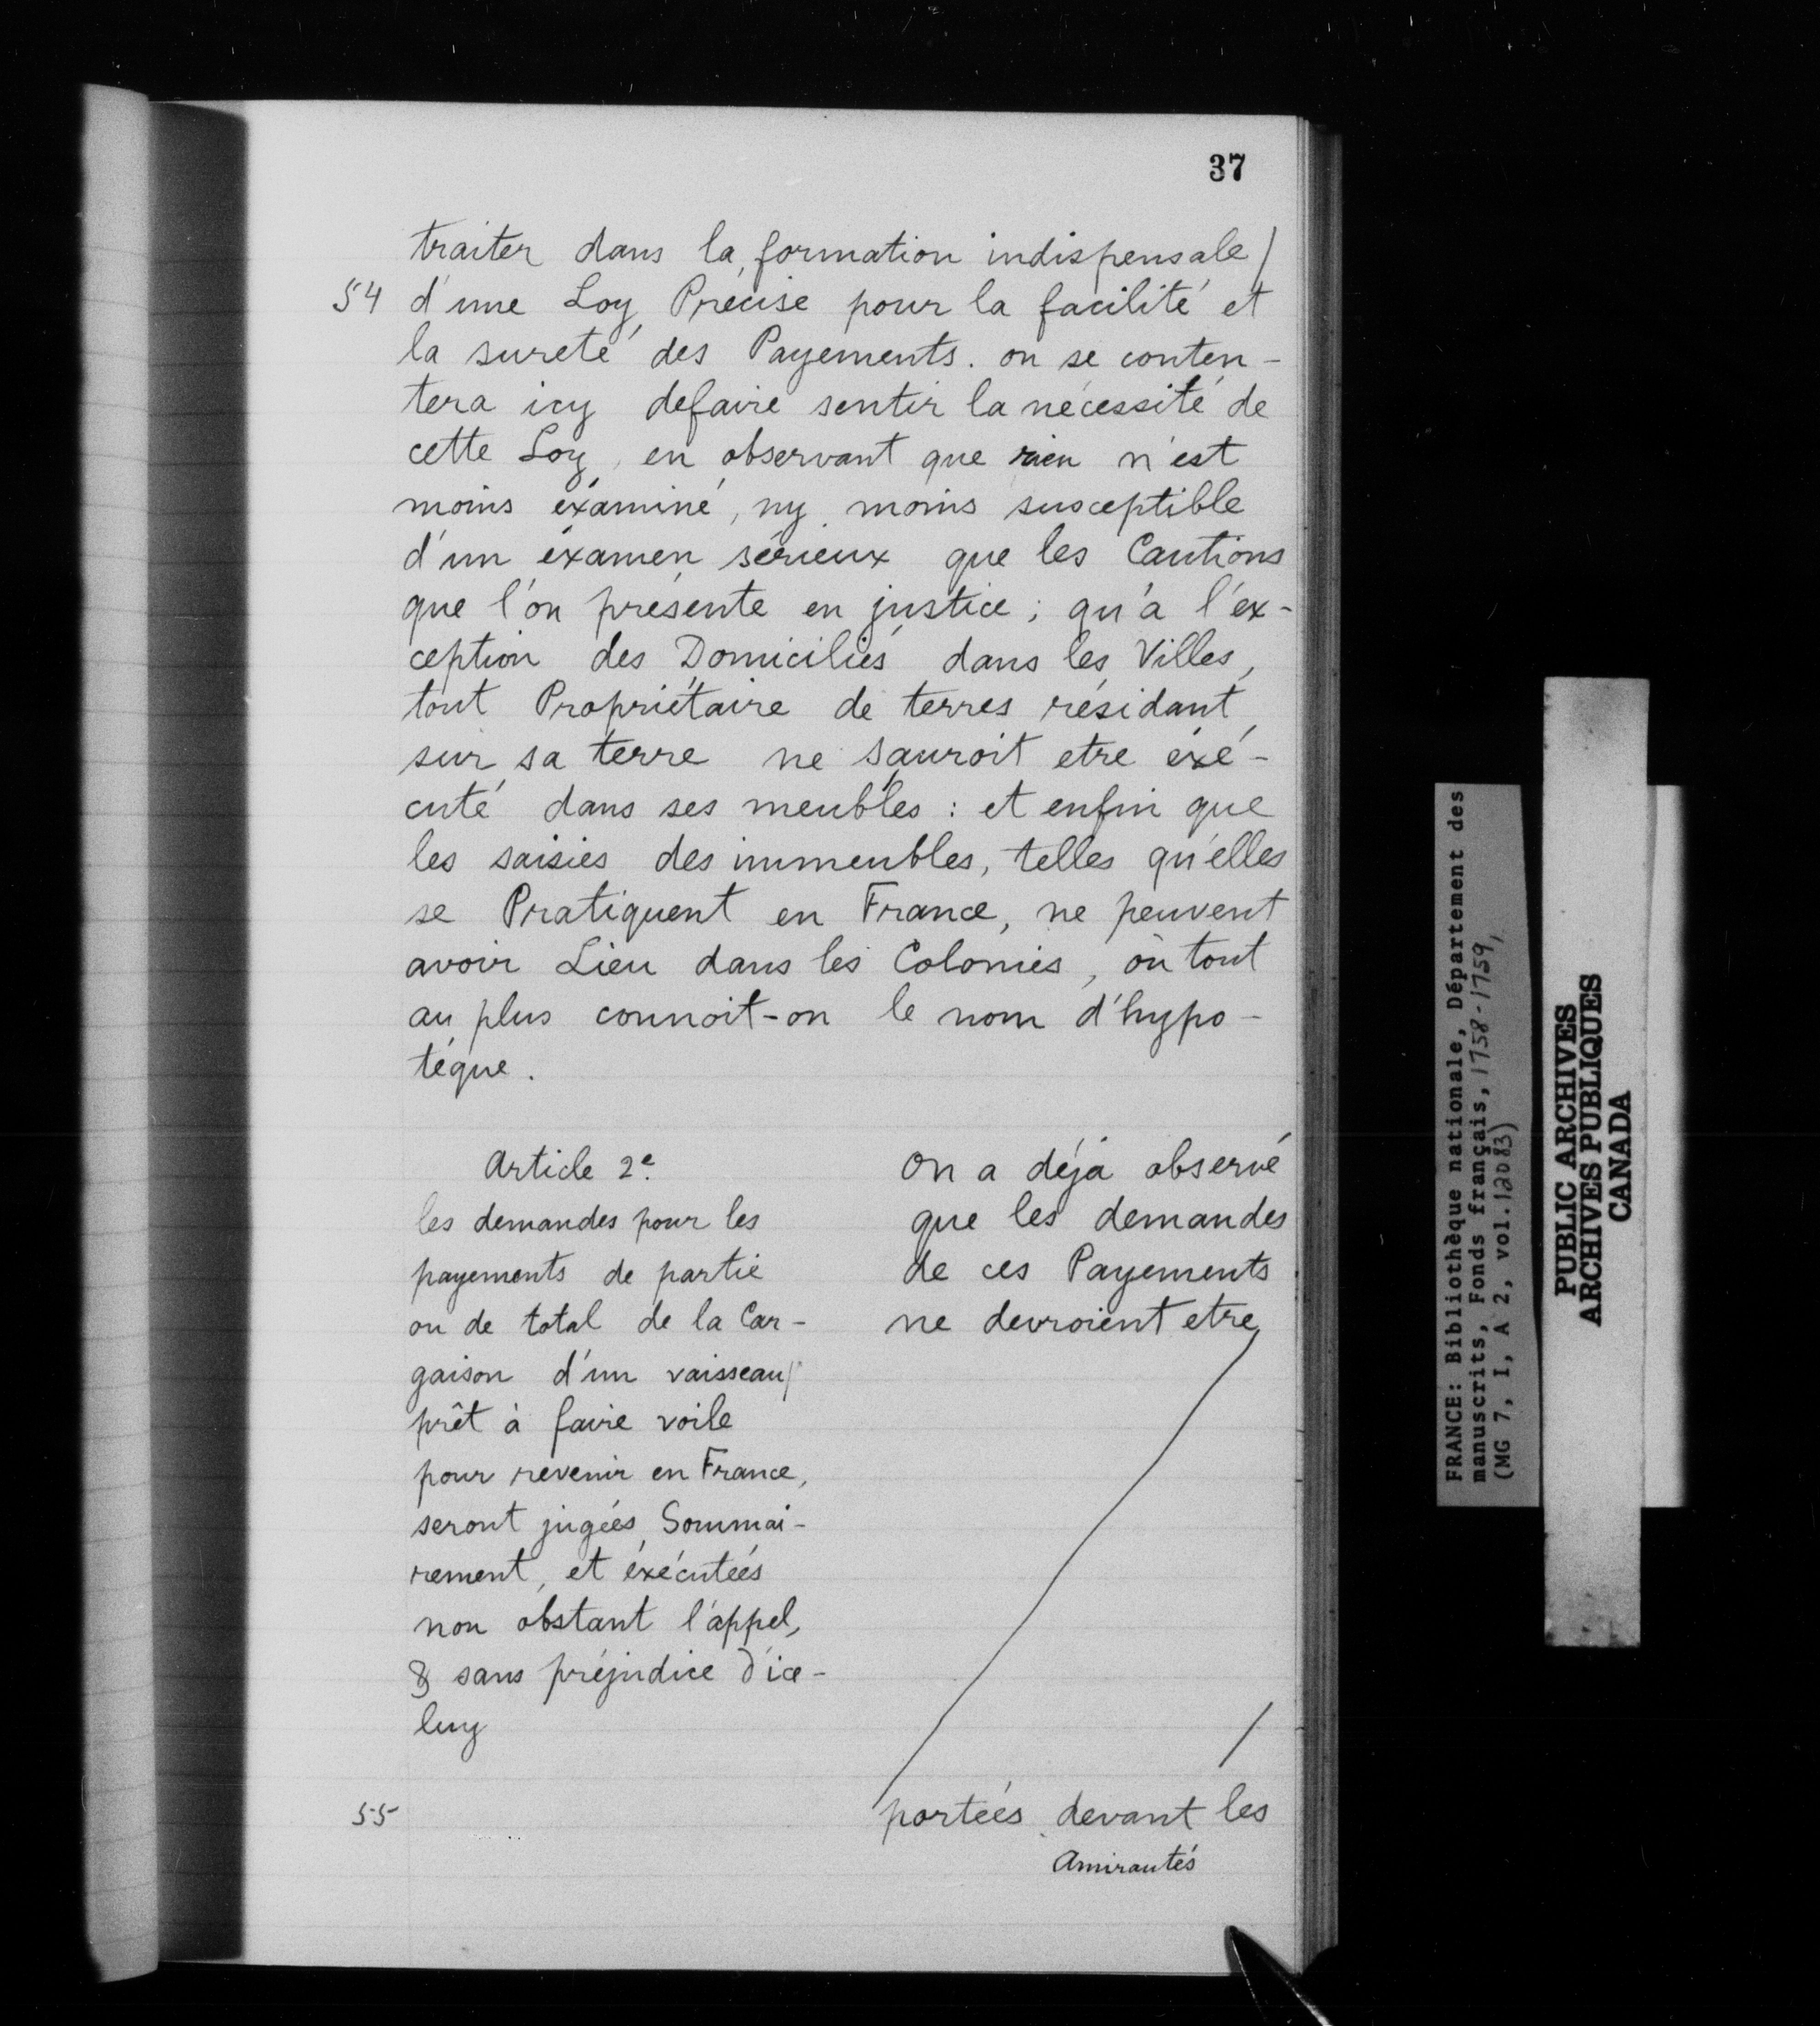 37
traiter dans la formation indispensale/
54 d'une Loy Précise pour la facilité et
la sureté des Payements. on se conten-
tera icy defaire sentir la nécessité de
cette Loy, en observant que rien n'est
moins éxaminé, ny moins susceptible
d'un éxamen sérieux que les Cautions
que l'on présente en justice; qu'à l'ex-
ception des Domiciliés dans les Villes,
tout Propriétaire de terres résidant
sur sa terre ne sauroit etre éxé-
cuté dans ses meubles: et enfin que
les saisies des immeubles, telles qu'elles
se Pratiquent en France, ne peuvent
avoir Lieu dans les Colonies, où tout
au plus connoit-on le nom d'hypo-
téque.
Article 2e.
les demandes pour les
payements de partie
ou de total de la Car-
gaison d'un vaisseau/
prêt à faire voile
pour revenir en France,
seront jugées Sommai-
rement, et éxécutées
non obstant l'appel,
& sans préjudice d'ice-
luy
On a déjà observé
que les demandes
de ces Payements
ne devroient etre
/
55 portées devant les
Amirautés
FRANCE: Bibliothèque nationale, Département des
manuscrits, Fonds français, 1758-1759,
(MG 7, I, A 2, vol. 12083)
PUBLIC ARCHIVES
ARCHIVES PUBLIQUES
CANADA